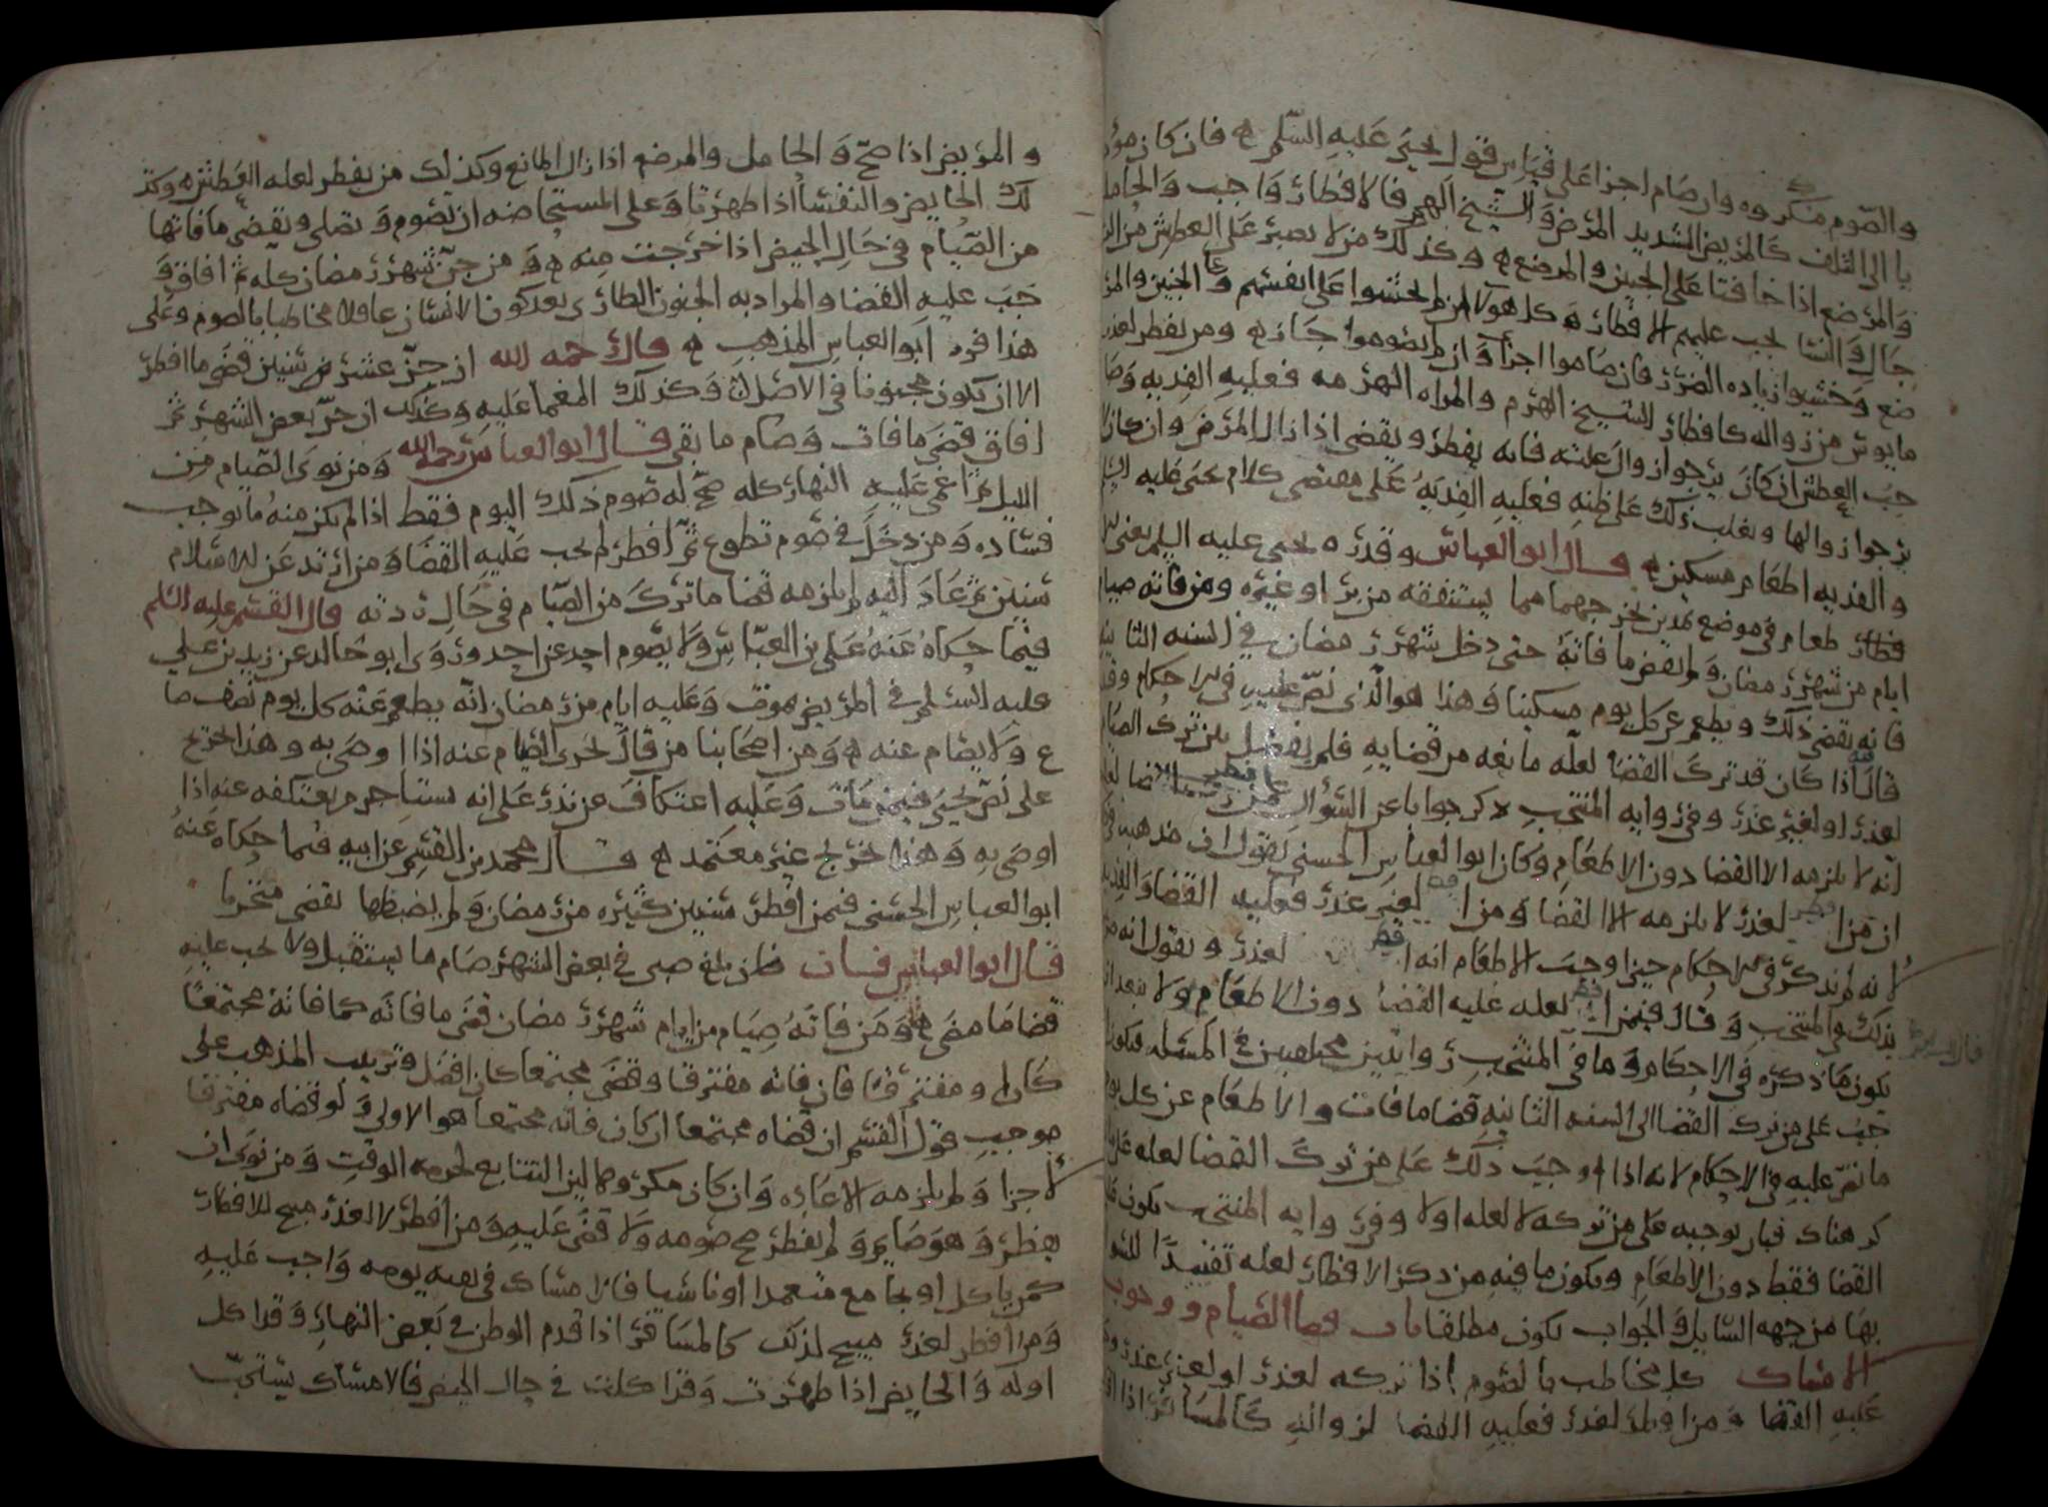 والصوم مكروه وان صام اجزا على قياس قول يحيى عليه السلم ه فان كان مؤد
يا الى التلف كالمريض الشديد المرض والشيخ الهرم فالافطار واجب والحامل
والمرضع اذا خافتا على الجنين والمرضع ه وكذلك من لا يصبر على العطش من الر
جال والنسا يجب عليهم الافطار ه كل هولا ان لم يخشوا على انفسهم والجنين والمر
ضع وخشيوا زياده الضرر فان صاموا اجزا وان لم يصوموا جاز ه ومن يفطر لعذر
مايوس من زواله كافطار الشيخ الهرم والمراه الهرمه فعليه الفديه وصا
حب العطش ان كان يرجوا زوال علته فانه يفطر ويقضي اذا زال المرض وان كان لا
يرجوا زوالها ويغلب ذلك على ظنه فعليه الفديه على مقتضى كلام يحيى عليه السلم
والفديه اطعام مسكين ه قال ابو العباس وقدره يحيى عليه السلم يعني
طعام في موضع بمدين يخرجهما مما يستنفقه من بر او غيره ومن فاته صيام
ايام من شهر رمضان ولم يقض ما فاته حتى دخل شهر رمضان في السنه الثانيه
فانه يقضي ذلك ويطعم عن كل يوم مسكينا وهذا هو الذي نص عليه في الاحكام
قال اذا كان قد ترك القضا لعله مانعه من قضايه فلم يفصل بين ترك الصيام
لعذر او لغير عذر وفي روايه المنتخب ذكر جوابا عن السوال
انه لا يلزمه الا القضا دون الاطعام وكان ابو العباس الحسني يقول ان مذهب
ان من افطر لعذر لا يلزمه الا القضا ومن افطر لغير عذر فعليه القضا والفديه
لانه لم يذكر في الاحكام حين اوجب الاطعام انه افطر لعذر ويقول انه
بذلك في المنتخب وقال فيمن افطر لعله عليه القضا دون الاطعام ولا يبعد ان
يكون ما ذكره في الاحكام وما في المنتخب روايتين مختلفتين في المسئله فيكون
يجب على من ترك القضا الى السنه الثانيه قضا ما فات والاطعام عن كل يوم
ما نص عليه في الاحكام لانه اذا اوجب ذلك على من ترك القضا لعله على ما
كر هناك فبان يوجبه على من تركه لا لعله اولا وفي روايه المنتخب يكون
القضا فقط دون الاطعام ويكون ما فيه من ذكر الافطار لعله تقييدا للسؤ
بها من جهه السايل والجواب يكون مطلقا باب قضا الصيام ووجوب
الامساك كل مخاطب بالصوم اذا تركه لعذر او لغير عذر
عليه القضا ومن افطر لعذر فعليه القضا لزواله كالمسافر اذا
والمريض اذا صح والحامل والمرضع اذا زال المانع وكذلك من يفطر لعله العطش ه وكذ
لك الحايض والنفسا اذا طهرتا وعلى المستحاضه ان تصوم وتصلي وتقضي ما فاتها
من الصيام في حال الحيض اذا خرجت منه ه ومن جن شهر رمضان كله ثم افاق و
جب عليه القضا والمراد به الجنون الطارى بعد كون الانسان عاقلا مخاطبا بالصوم وعلى
هذا فرد ابو العباس المذهب ه قال رحمه الله ان جن عشر سنين قضى ما افطر
الا ان يكون مجنونا في الاصل وكذلك المغما عليه وكذلك ان جن بعض الشهر ثم
افاق قضى ما فات وصام ما بقي قال ابو العباس رحمه الله ومن نوى الصيام من
الليل ثم اغمي عليه النهار كله صح له صوم ذلك اليوم فقط اذا لم يكن منه ما يوجب
فساده ومن دخل في صوم تطوع ثم افطر لم يجب عليه القضا ومن ارتد عن الاسلام
سنين ثم عاد اليه لم يلزمه قضا ما ترك من الصيام في حال ردته قال القسم عليه السلم
فيما حكاه عنه علي بن العباس ولا يصوم احد عن احد وروى ابو خالد عن زيد بن علي
عليه السلم في المريض يموت وعليه ايام من رمضان انه يطعم عنه كل يوم نصف صا
ع ولا يصام عنه ه ومن اصحابنا من قال يجزى الصيام عنه اذا اوصى به وهذا خرج
على نص يحيى فيمن مات وعليه اعتكاف عن نذر على انه يستاجر من يعتكفه عنه اذا
اوصى به وهذا تخريج غير معتمد ه قال محمد بن القسم عن ابيه فيما حكاه عنه
ابو العباس الحسني فيمن افطر سنين كثيره من رمضان ولم يضبطها يقضي متحريا
قال ابو العباس فان بلغ صبي في بعض الشهر صام ما يستقبل ولا يجب عليه
قضا ما مضى ه ومن فاته صيام من ايام شهر رمضان قضى ما فاته كما فاته مجتمعا
كان او مفترقا فان فاته مفترقا وقضى مجتمعا كان افضل وترتيب المذهب على
موجب قول القسم ان قضاه مجتمعا ان كان فاته مجتمعا هو الاولى ولو قضاه مفترقا
لاجزا ولم يلزمه الاعاده وان كان مكروها لان التتابع لحرمه الوقت ومن نوى ان
يفطر وهو صايم ولم يفطر صح صومه ولا قضى عليه ومن افطر لا لعذر مبيح للافطار
كمن ياكل او يجامع متعمدا او ناسيا فالامساك في بقيه يومه واجب عليه
ومن افطر لعذر مبيح لذلك كالمسافر اذا قدم الوطن في بعض النهار وقد اكل
اوله والحايض اذا طهرت وقد اكلت في حال الحيض فالامساك يستحب